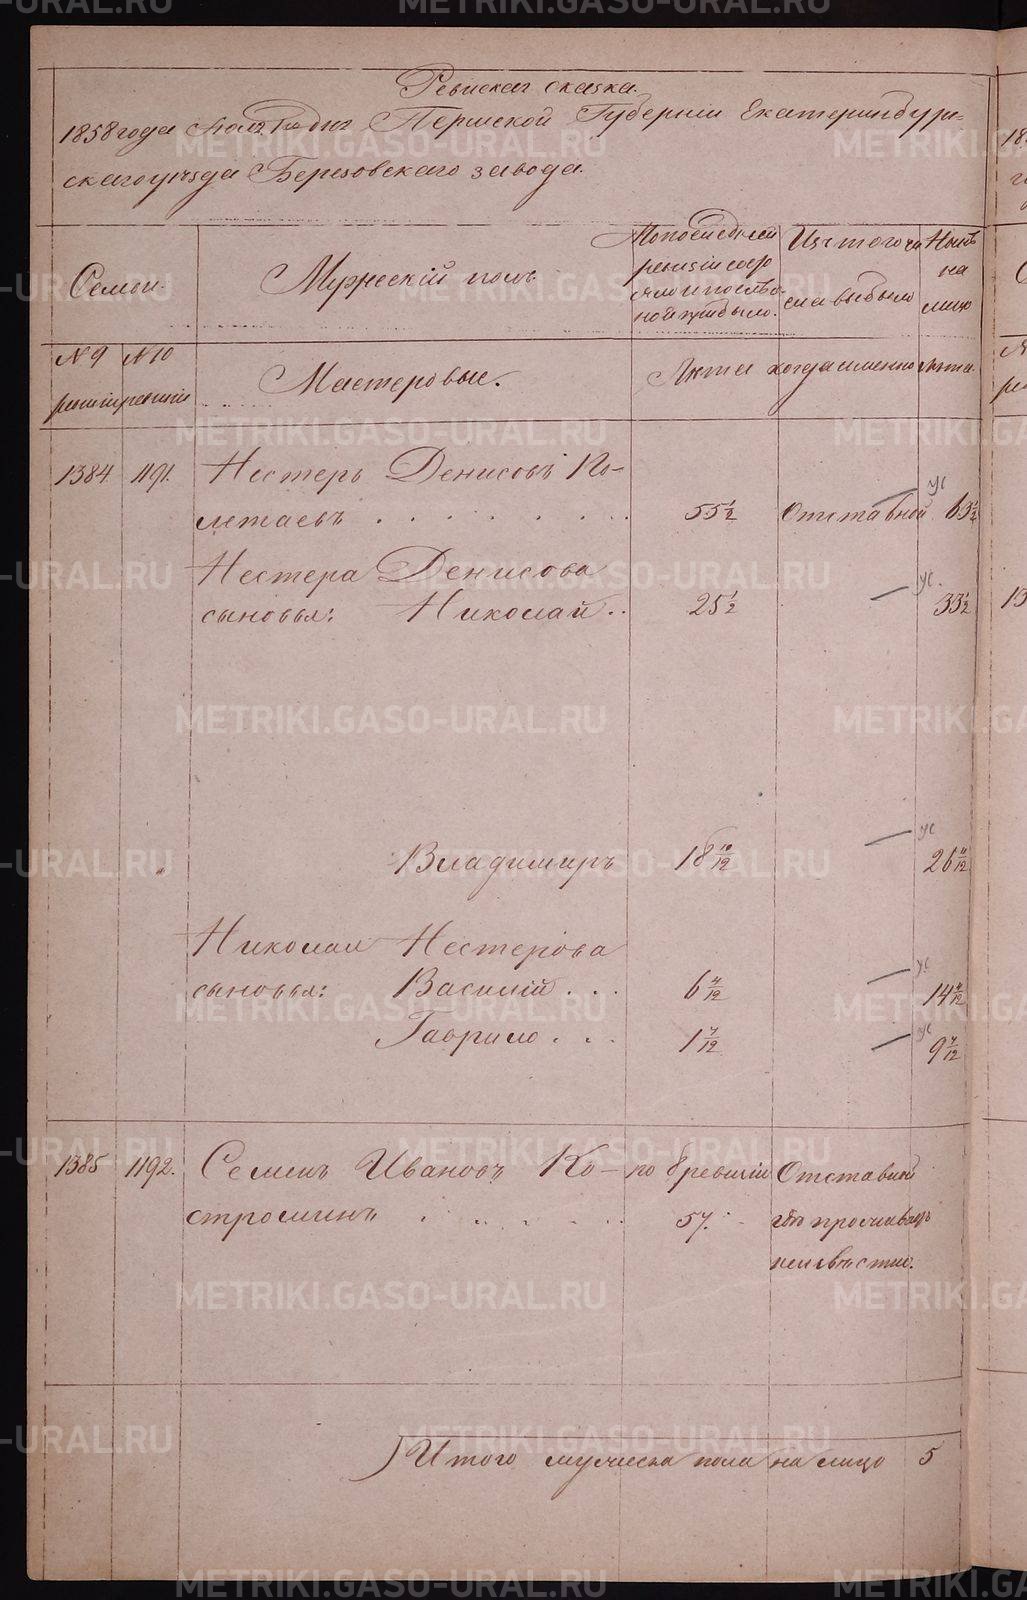 Ревизская сказка.
1858 года Іюля 1го дня Пермской Губерніи Екатеринбург=
скаго уѣзда Березовскаго завода.
Семьи.
Мужескій полъ
По последней
ревизіи состо
яло и после о=
ной прибыло.
Изъ того чи
сла выбыло
Нынѣ
на
лицо
№ 9
ревизіи
№ 10
ревизіи
Мастеровые.
Лѣта
когда именно
лѣта.
1384. 1191. Нестеръ Денисовъ Ко-
летаевъ . . . . . . . 55 1/2 Отставной 63 1/2
Нестера Денисова
сыновья: Николай . . 25 1/2 33 1/2
Владимиръ 18 10/12 26 11/12
Николая Нестерова
сыновья: Василій . . . 6 4/12 14 4/12
Гаврило . . . 1 7/12 9 7/12
1385 1192. Семенъ Ивановъ Ко- по 8 ревизіи Отставной
строминъ . . . . . . 57. гдѣ проживаетъ
неизвѣстно.
Итого мужеска пола на лицо 5
METRIKI.GASO-URAL.RU